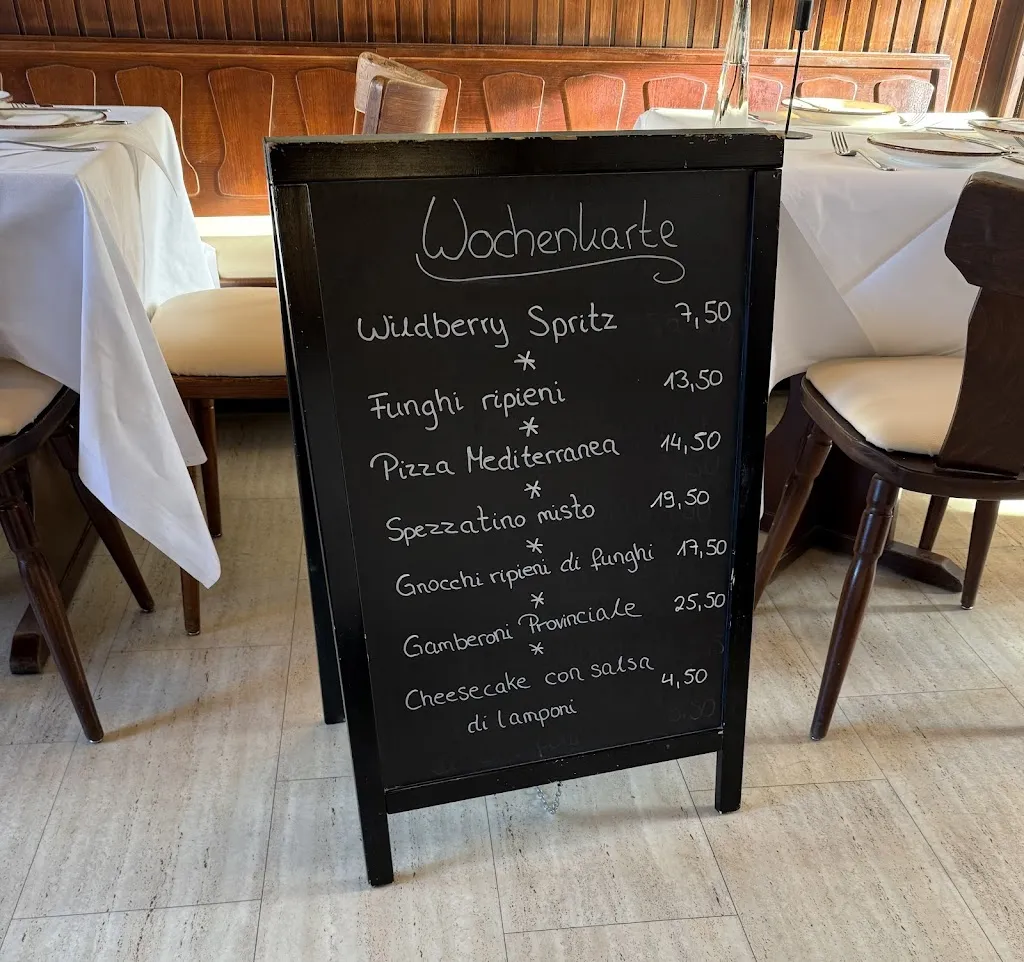 Wochenkarte
Wildberry Spritz 7,50
*
Funghi ripieni 13,50
*
Pizza Mediterranea 14,50
*
Spezzatino misto 19,50
*
Gnocchi ripieni di funghi 17,50
*
Gamberoni Provinciale 25,50
*
Cheesecake con salsa 4,50
di lamponi